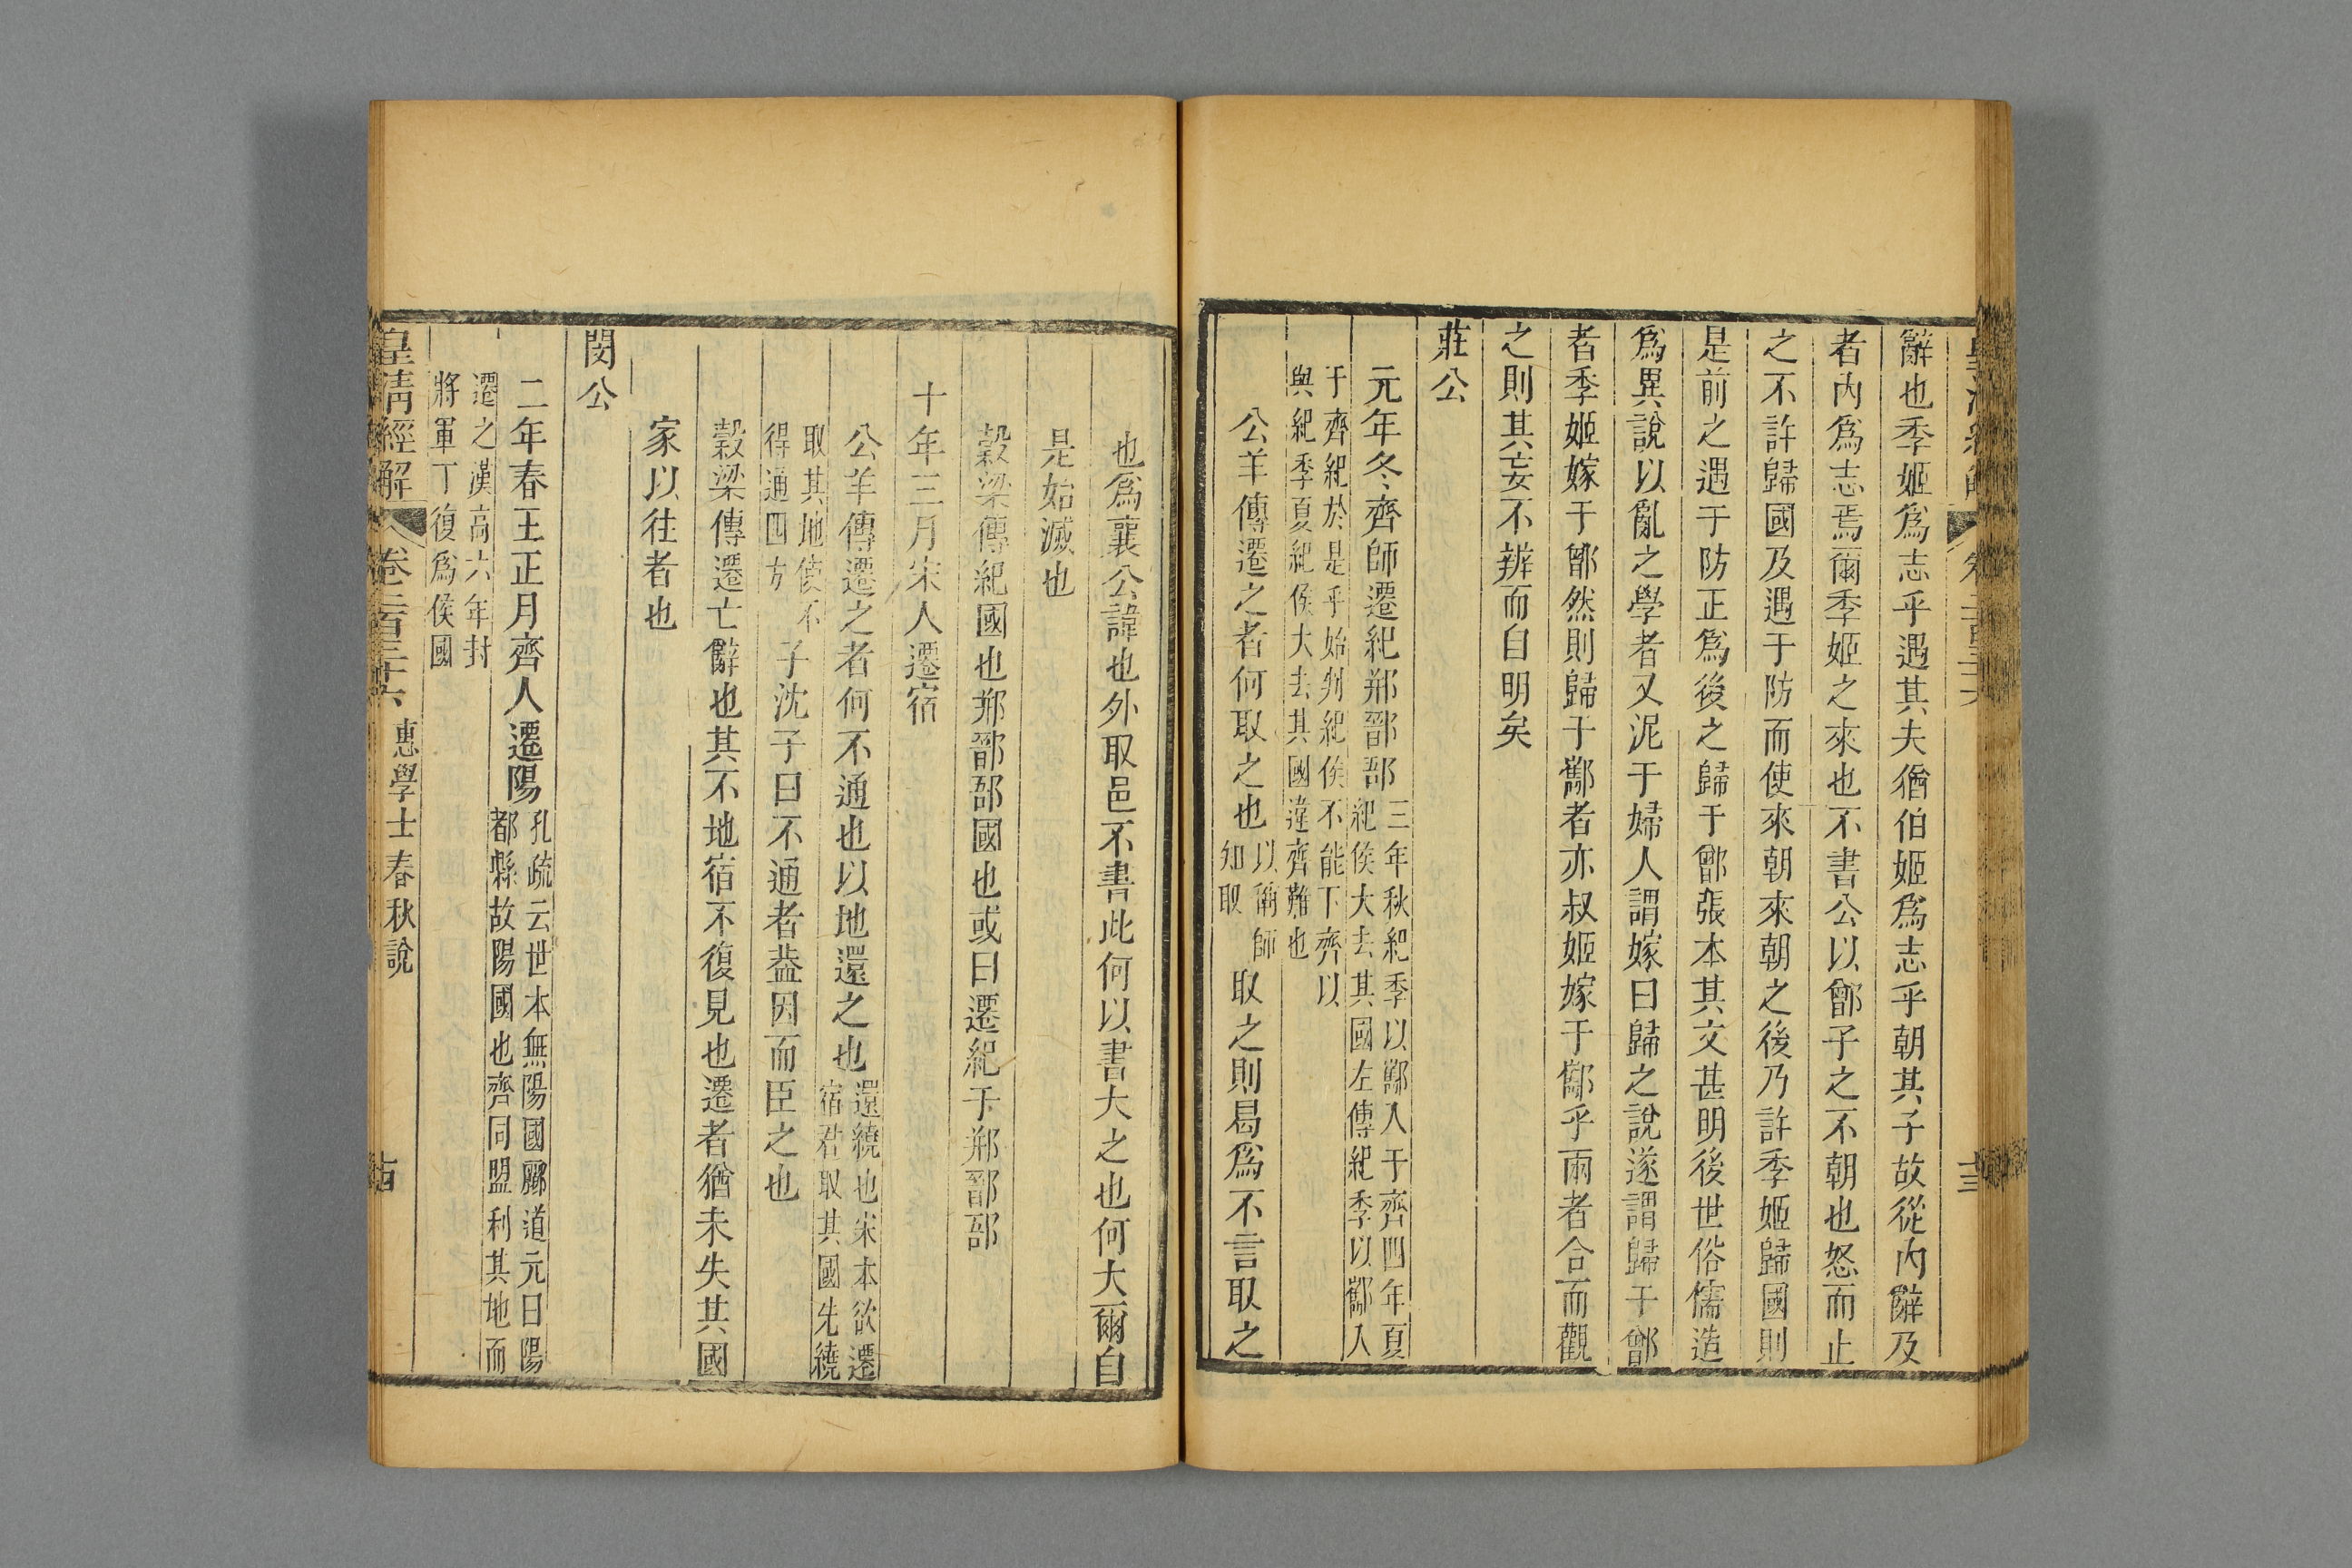 辭也季姬爲志乎遇其夫猶伯姬爲志乎朝其子故從內辭及
者內爲志焉爾季姬之來也不書公以鄫子之不朝也怒而止
之不許歸國及遇于防而使來朝來朝之後乃許季姬歸國則
是前之遇于防正爲後之歸于鄫張本其文甚明後世俗儒造
爲異說以亂之學者又泥于婦人謂嫁曰歸之說遂謂歸于鄫
者季姬嫁于鄫然則歸于酅者亦叔姬嫁于酅乎兩者合而觀
之則其妄不辨而自明矣
莊公
元年冬齊師遷紀郱鄑郚
三年秋紀季以酅入于齊四年夏
紀侯大去其國左傳紀季以酅入
于齊紀於是乎始判紀侯不能下齊以
與紀季夏紀侯大去其國違齊難也
公羊傳遷之者何取之也
以稱師
知取
取之則曷爲不言取之
也爲襄公諱也外取邑不書此何以書大之也何大爾自
是始滅也
穀梁傳紀國也郱鄑郚國也或曰遷紀于郱鄑郚
十年三月宋人遷宿
公羊傳遷之者何不通也以地還之也
還繞也宋本欲遷
宿君取其國先繞
取其地使不
得通四方
子沈子曰不通者葢因而臣之也
穀梁傳遷亡辭也其不地宿不復見也遷者猶未失其國
家以往者也
閔公
二年春王正月齊人遷陽
孔疏云世本無陽國酈道元曰陽
都縣故陽國也齊同盟利其地而
遷之漢高六年封
將軍丁復爲侯國
皇清經解 卷二百三十六 惠學士春秋說